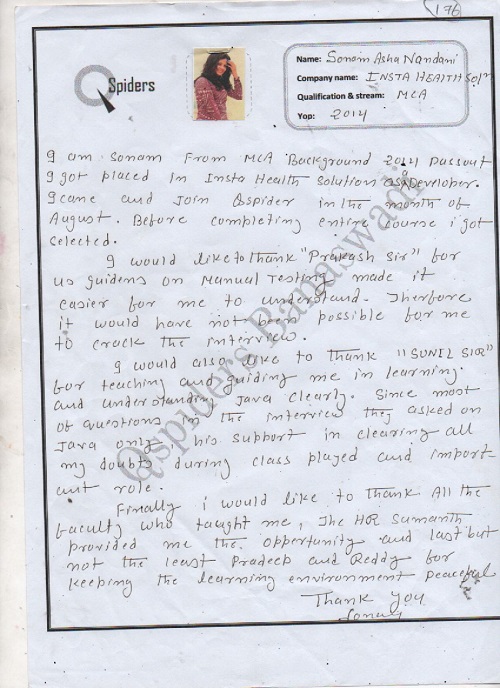 176
QSpiders
Name: Sonam Asha Nandani
Company name: INSTA HEALTH Sol
Qualification & stream: MCA
Yop: 2014
I am Sonam From MCA Background 2014 passout
I got placed in Insta Health Solution as Developer.
I came and Join Qspider in the month of
August. Before completing entire course i got
selected.
I would like to thank "Prakash Sir" for
us guidens on Manual Testing made it
easier for me to understand. Therfore
it would have not been possible for me
to crack the interview.
I would also like to thank "SUNIL SIR"
for teaching and guiding me in learning.
and understanding Java clearly. Since most
of questions in the interview they asked on
Java only. his support in clearing all
my doubts during class played and import
ant role.
Finally i would like to thank All the
faculty who taught me, The HR Sumanth
provided me the opportunity and last but
not the least Pradeep and Reddy for
keeping the learning environment peaceful
Thank You
Sonam
Qspiders Banaswadi